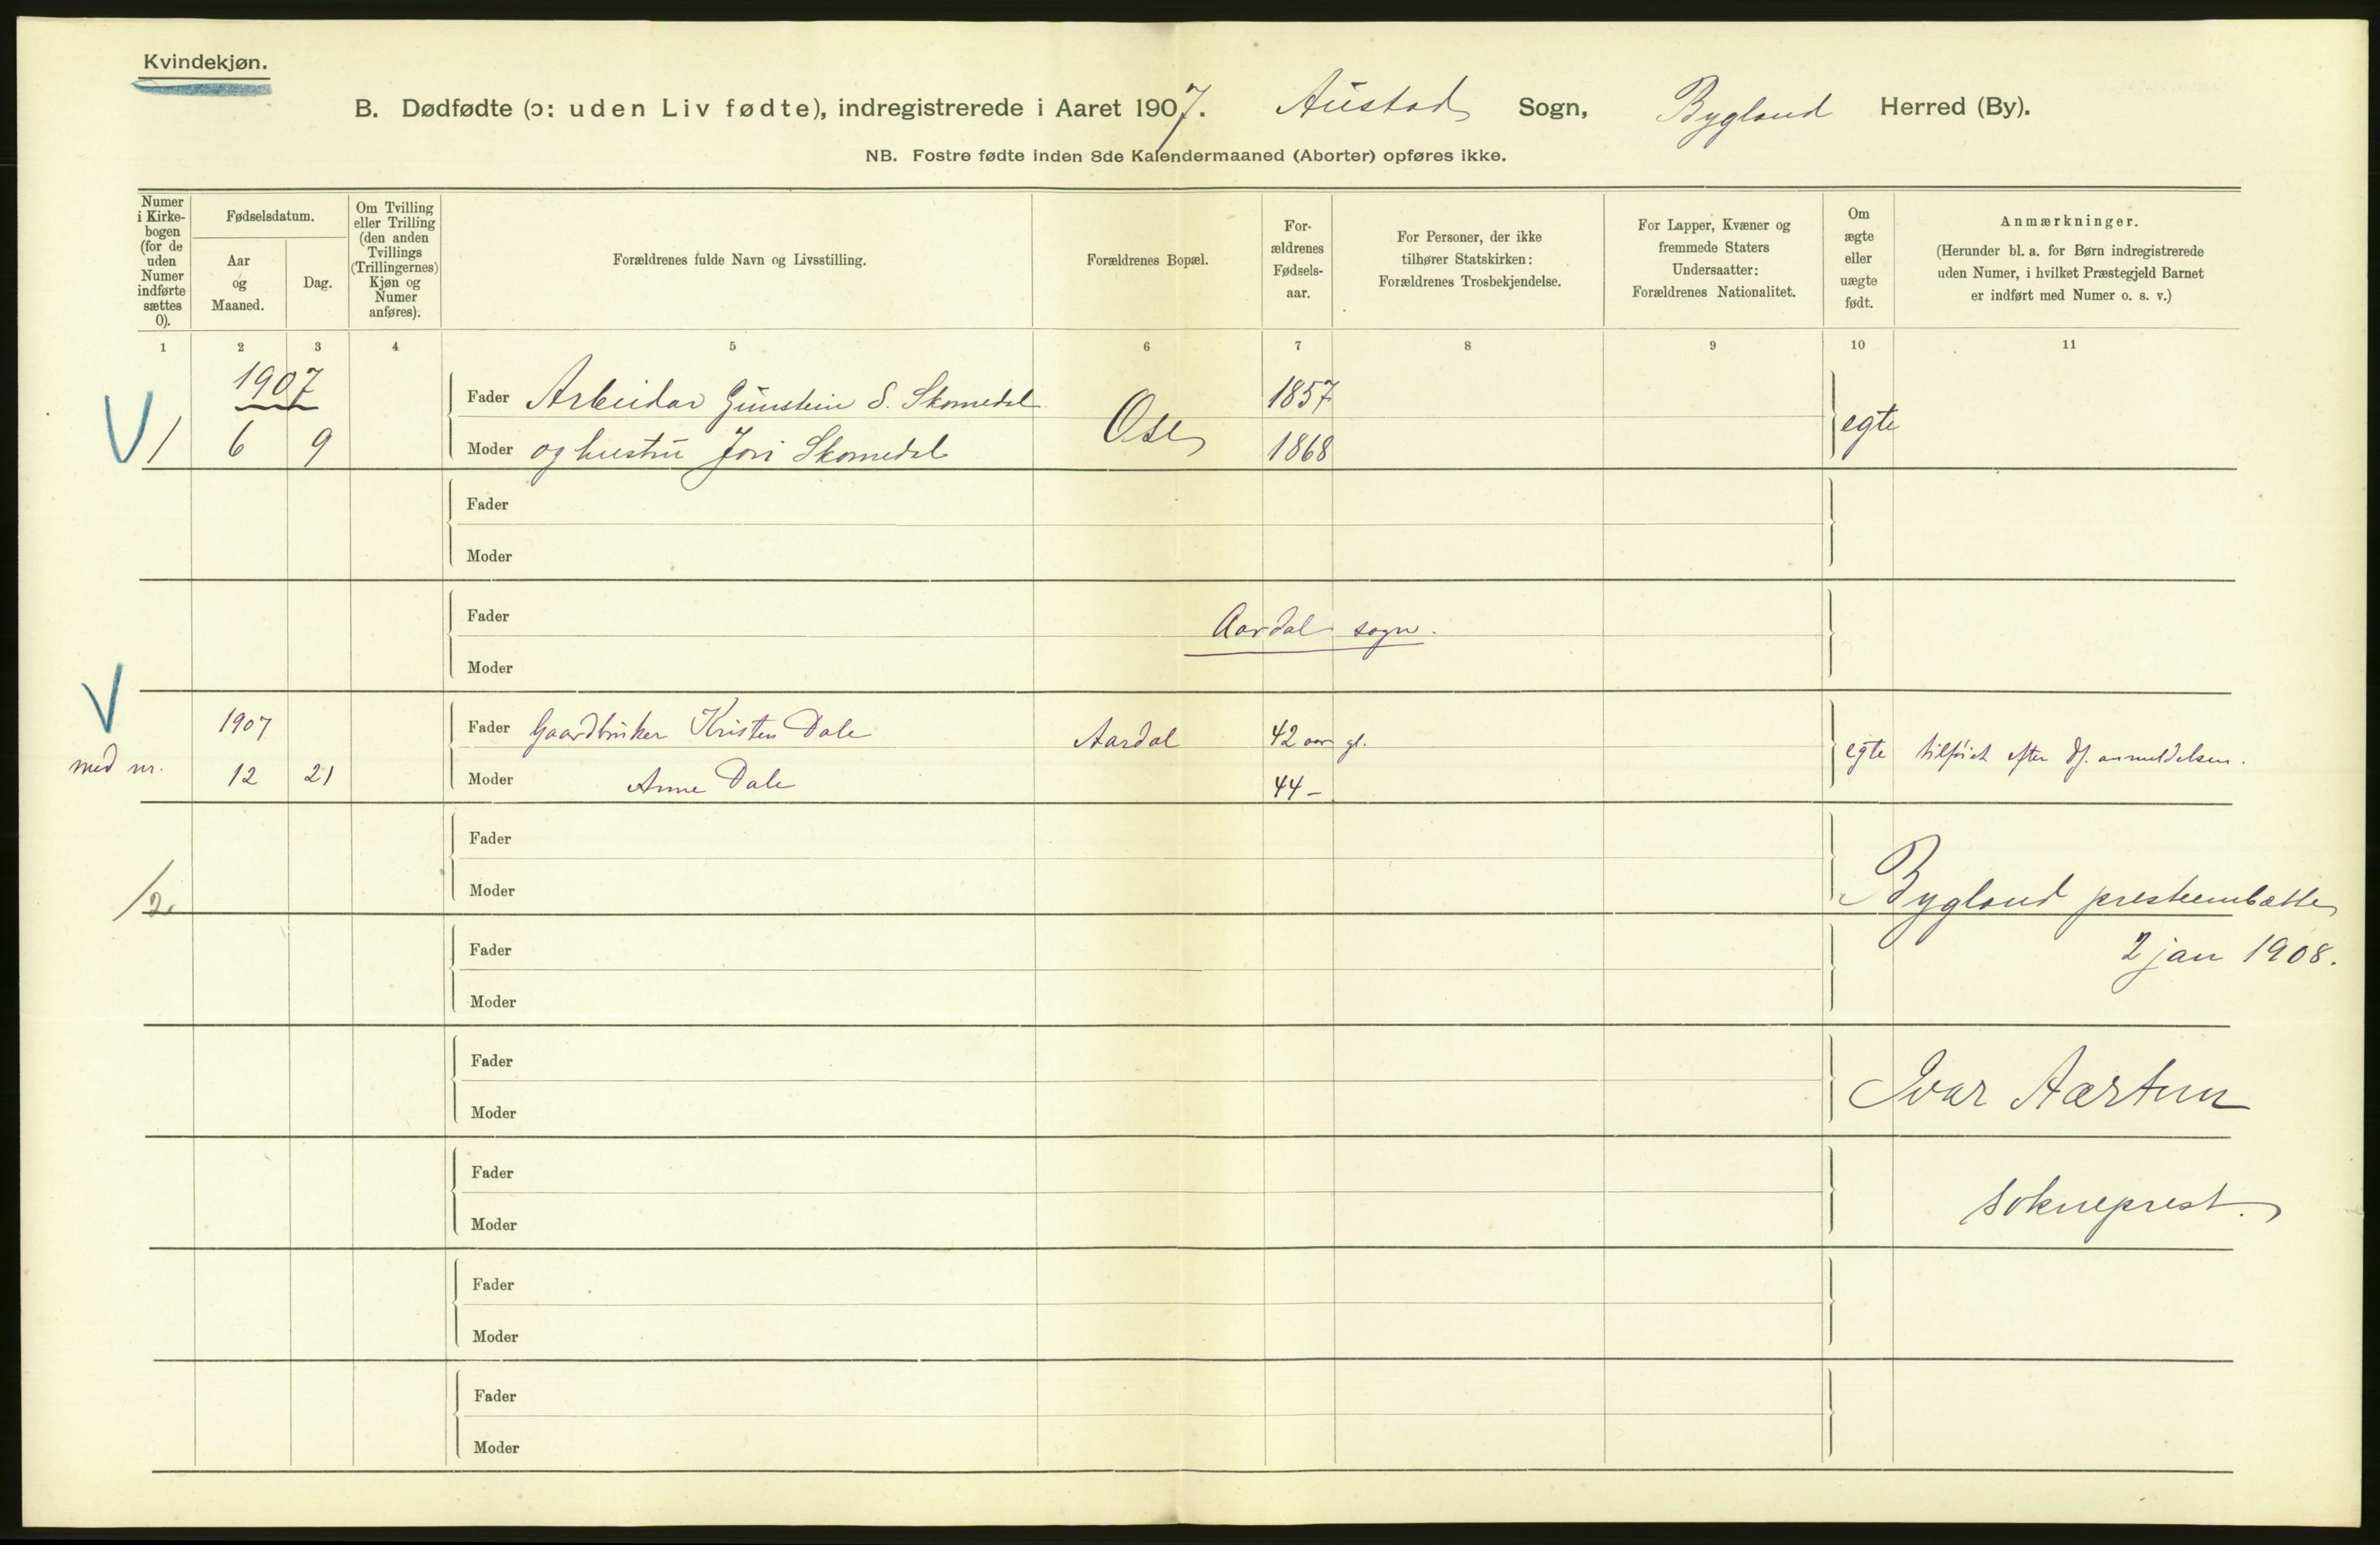 Kvindekjøn.
B. Dødfødte (ɔ: uden Liv fødte), indregistrerede i Aaret 1907. Austad Sogn, Bygland Herred (By).
NB. Fostre fødte inden 8de Kalendermaaned (Aborter) opføres ikke.
Numer i Kirkebogen (for de uden Numer indførte sættes 0).
Fødselsdatum.
Aar og Maaned.
Dag.
Om Tvilling eller Trilling (den anden Tvillings (Trillingernes) Kjøn og Numer anføres).
Forældrenes fulde Navn og Livsstilling.
Forældrenes Bopæl.
Forældrenes Fødselsaar.
For Personer, der ikke tilhører Statskirken: Forældrenes Trosbekjendelse.
For Lapper, Kvæner og fremmede Staters Undersaatter: Forældrenes Nationalitet.
Om ægte eller uægte født.
Anmærkninger.
(Herunder bl. a. for Børn indregistrerede uden Numer, i hvilket Præstegjeld Barnet er indført med Numer o. s. v.)
1 2 3 4 5 6 7 8 9 10 11
1907 Fader Arbeidar Gunstein S. Skomedal Ose 1857 egte
V 1 6 9 Moder og hustru Jori Skomedal 1868
Fader
Moder
Fader Aardal sogn.
Moder
V 1907 Fader Gaardbruker Kristen Dale Aardal 42 aar gl. egte tilføiet efter df. anmeldelsen.
med nr. 12 21 Moder Anne Dale 44 –
Fader
Moder
/2. Bygland presteembætte
Fader 2 jan 1908.
Moder
Fader
Moder Ivar Aartun
Fader
Moder sokneprest.
Fader
Moder
Fader
Moder